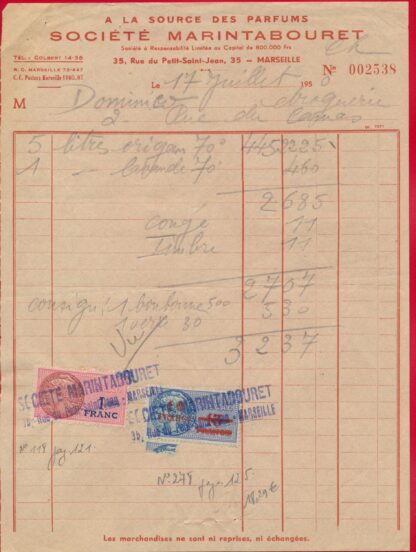 A LA SOURCE DES PARFUMS
SOCIÉTÉ MARINTABOURET
Société à Responsabilité Limitée au Capital de 800.000 frs
TÉL.: COLBERT 14-58
35, Rue du Petit-Saint-Jean, 35 — MARSEILLE
R. C. MARSEILLE
C. C. Postaux Marseille
Nº 002538
Le 17 Juillet 195
M Dominico droguerie
2 Rue du
5 litres origan 70° 445 2225
1 — lavande 70° 460
2685
congé 11
Timbre 11
2707
consign: 1 bonbonne 500 530
1 verre 30
3237
SOCIÉTÉ MARINTABOURET
1 FRANC
SOCIÉTÉ MARINTABOURET
MARSEILLE
Nº 119 pag 121
Nº 279 pag 125
Les marchandises ne sont ni reprises, ni échangées.